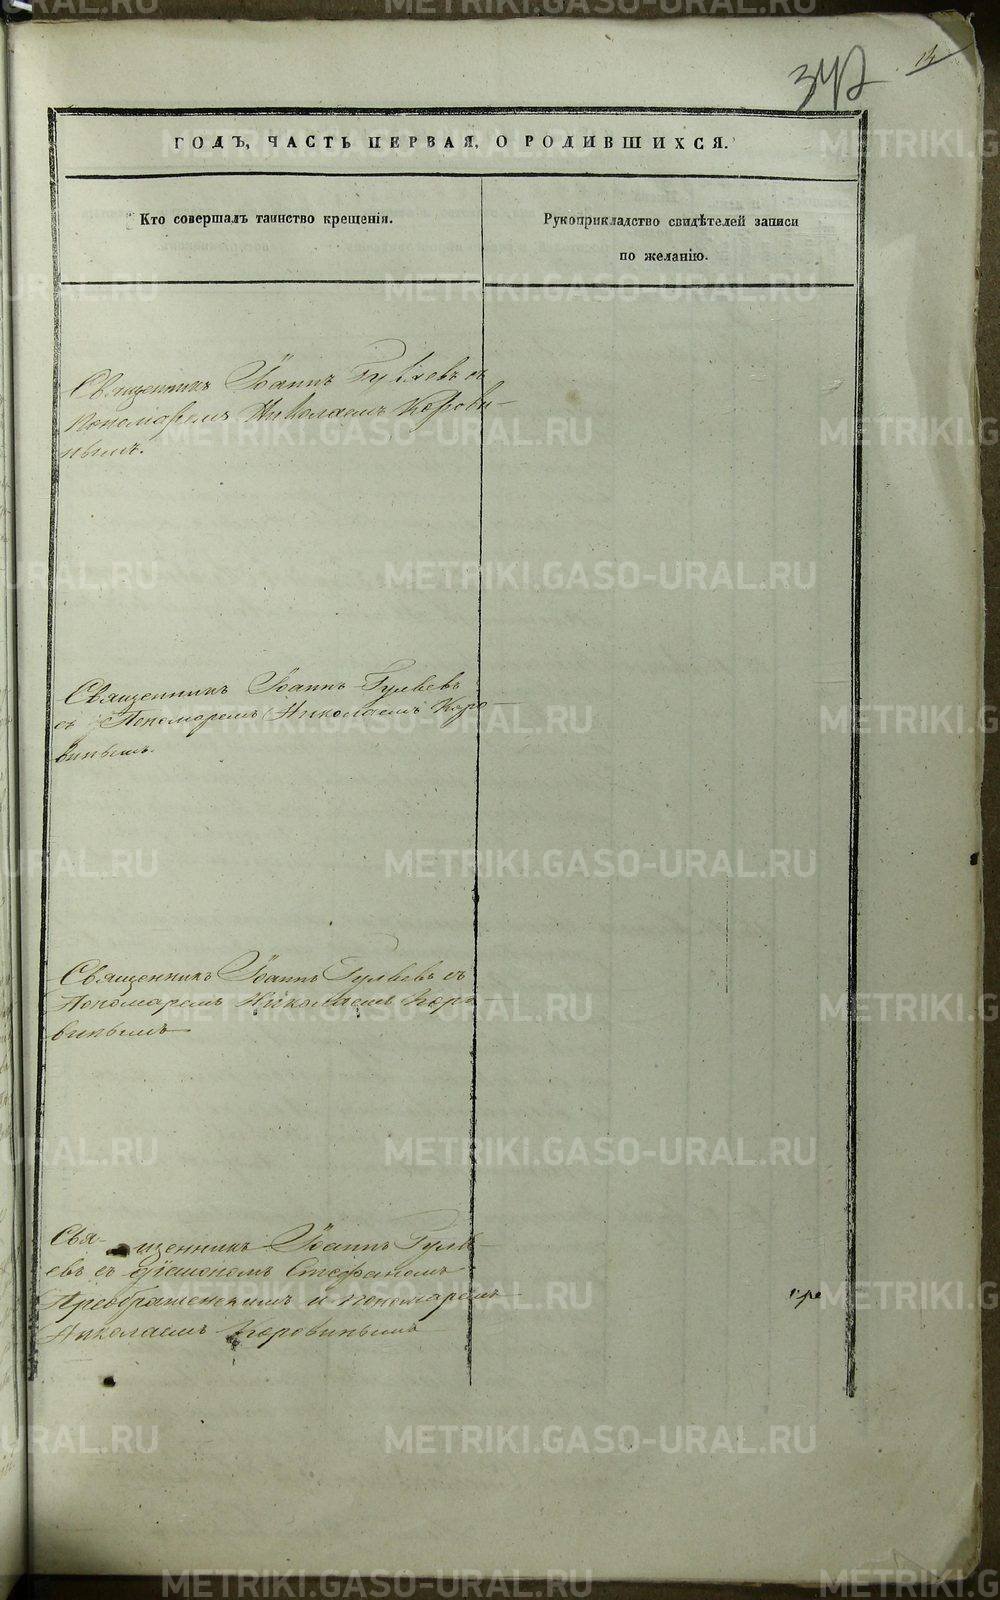 342
14
ГОДЪ, ЧАСТЬ ПЕРВАЯ, О РОДИВШИХСЯ.
Кто совершалъ таинство крещенія.
Рукоприкладство свидѣтелей записи
по желанію.
Священникъ Іоаннъ Гуляевъ съ
Пономаремъ Николаемъ Корови-
нымъ.
Священникъ Іоаннъ Гуляевъ
съ Пономаремъ Николаемъ Коро-
винымъ.
Священникъ Іоаннъ Гуляевъ съ
Пономаремъ Николаемъ Коро-
винымъ
Свя- щенникъ Іоаннъ Гуля-
евъ съ діакономъ Стефаномъ
Преображенскимъ и пономаремъ
Николаемъ Коровинымъ
METRIKI.GASO-URAL.RU